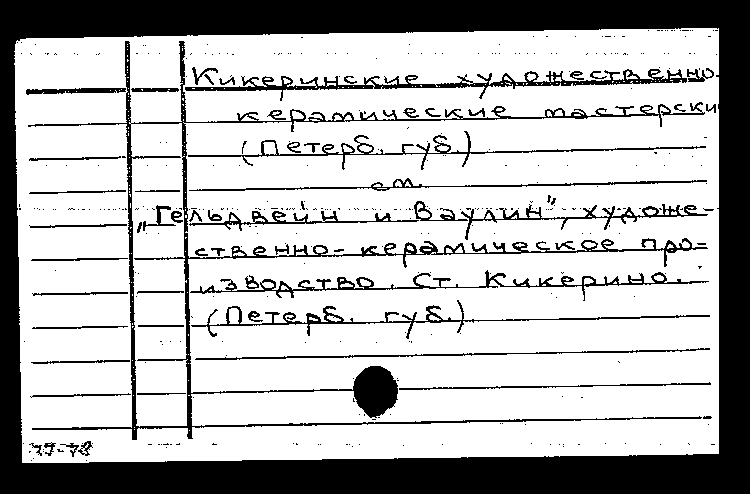 Кикеринские художественно-
керамические мастерски
(Петерб. губ.)
см.
„Гельдвейн и Ваулин", художе-
ственно-керамическое про=
изводство. Ст. Кикерино.
(Петерб. губ.)